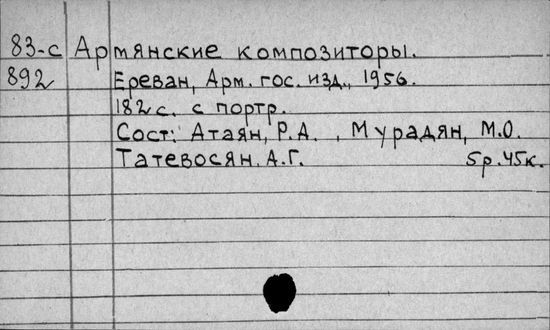 83-с Армянские композиторы.
892 Ереван, Арм. гос. изд., 1956.
182 с. с портр.
Сост: Атаян, Р.А. , Мурадян, М.О.
Татевосян. А.Г. 5р.45к.